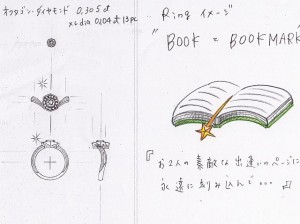 オクタゴン・ダイヤモンド 0.305ct
メレdia 0.04ct 13pc
Ring イメージ
"BOOK = BOOKMARK"
『お2人の素敵な出逢いのページに
永遠に刻み込んで… 』